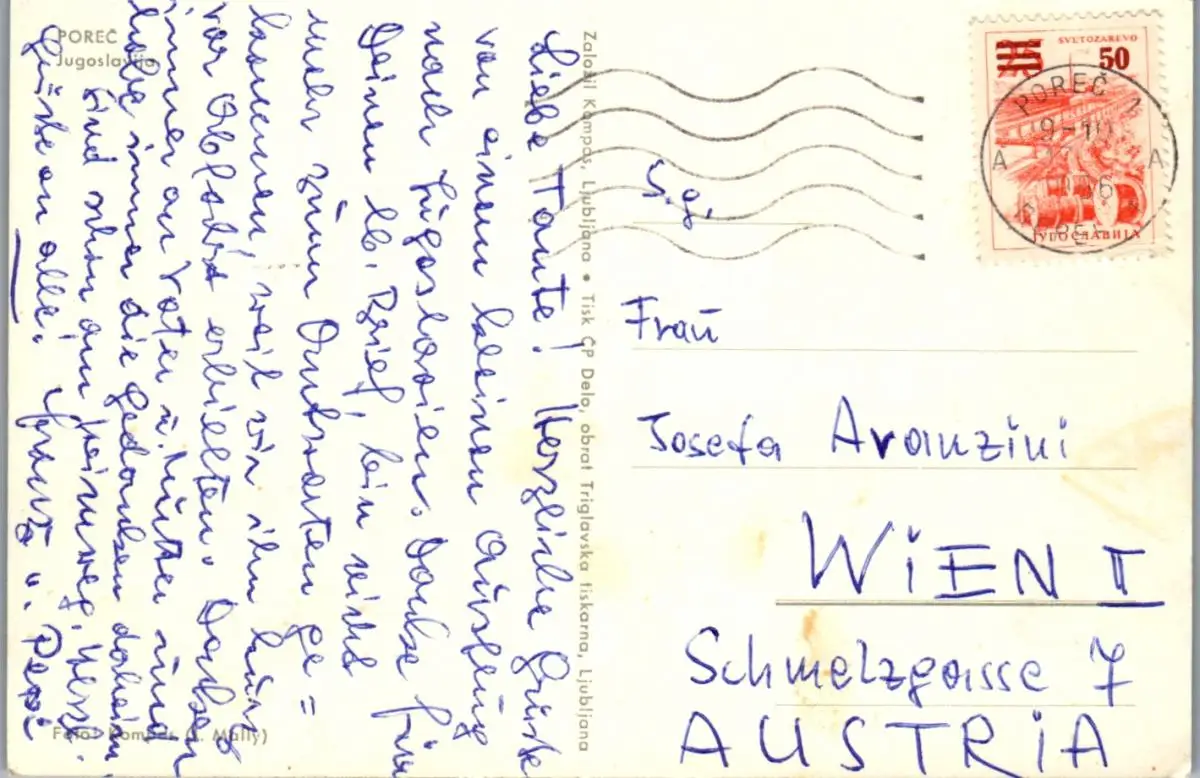 POREČ
Jugoslavija
Liebe Tante! Herzliche Grüße
von einem kleinen Ausflug
nach Jugoslavien. Danke für
Deinen lb. Brief, bin nicht
mehr zum Antworten ge=
kommen, weil wir ihn kurz
vor Abfahrt erhielten. Denken
immer an Vater u. Mutter und
habe immer die Gedanken daheim
sind schon am Heimweg. Herzl.
Grüße an alle.
Foto: Kompas (J. Mally)
Založil Kompas, Ljubljana • Tisk ČP Delo, obrat Triglavska tiskarna, Ljubljana
SVETOZAREVO
50
ЈУГОСЛАВИЈА
POREČ 1
9-10
A A
Frau
Josefa Avanzini
WIEN II
Schmelzgasse 7
AUSTRIA